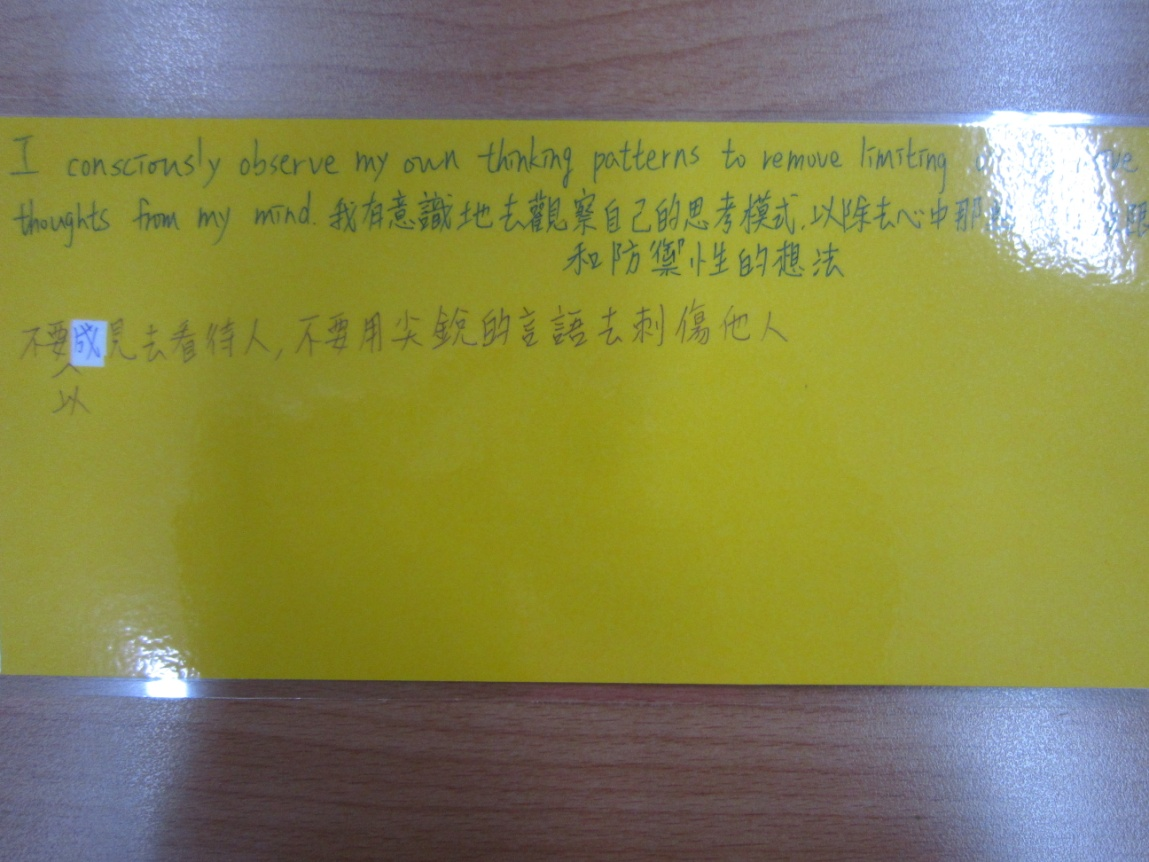 I consciously observe my own thinking patterns to remove limiting
thoughts from my mind. 我有意識地去觀察自己的思考模式, 以除去心中那
和防禦性的想法
不要成見去看待人, 不要用尖銳的言語去刺傷他人
以